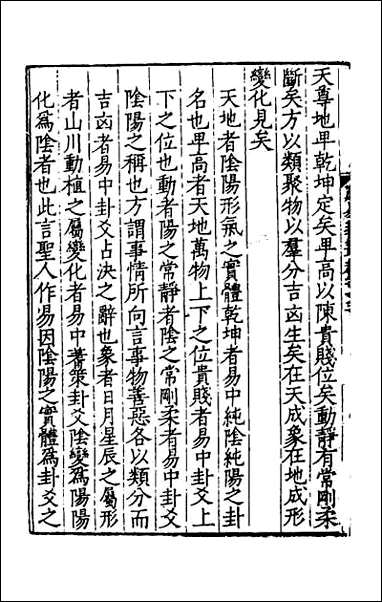 天尊地卑乾坤定矣卑高以陳貴賤位矣動静有常剛柔
斷矣方以類聚物以羣分吉凶生矣在天成象在地成形
變化見矣
天地者陰陽形氣之實體乾坤者易中純陰純陽之卦
名也卑高者天地萬物上下之位貴賤者易中卦爻上
下之位也動者陽之常静者陰之常剛柔者易中卦爻
陰陽之稱也方謂事情所向言事物善惡各以類分而
吉凶者易中卦爻占決之辭也象者日月星辰之屬形
者山川動植之屬變化者易中蓍策卦爻陰變爲陽陽
化爲陰者也此言聖人作易因陰陽之實體爲卦爻之